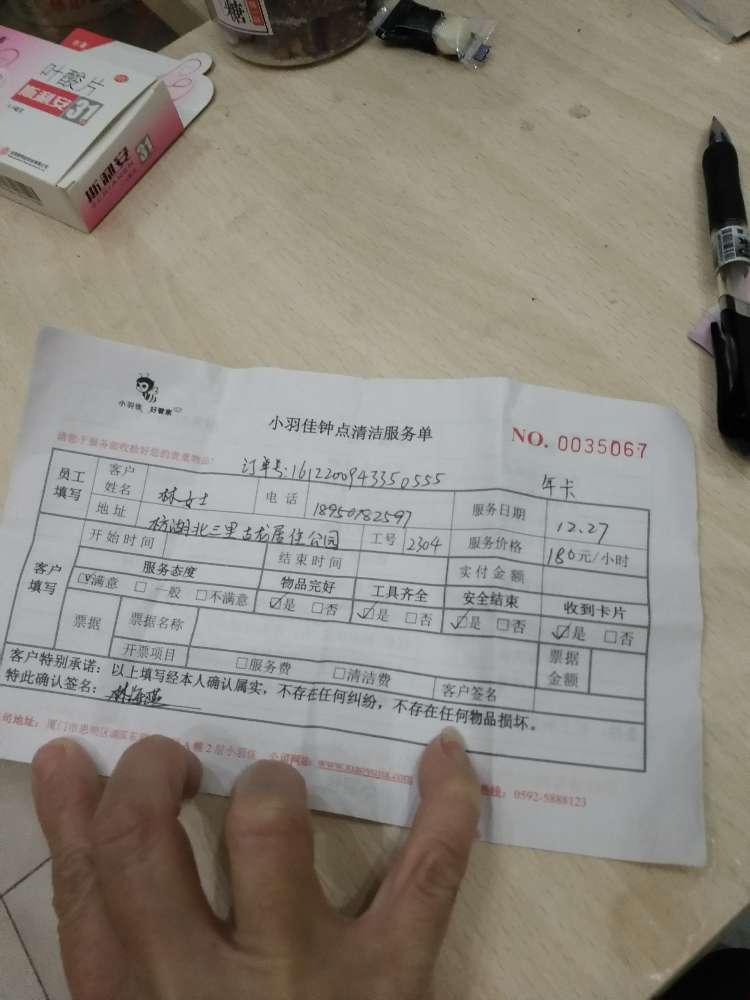 糖
叶酸片
斯利安
31
斯利安
31
小羽佳 好管家
小羽佳钟点清洁服务单
NO. 0035067
请您于服务前收捡好您的贵重物品!
订单号:1612200943350555
年卡
员工填写 客户姓名 林女士 电话 18950182597 服务日期 12.27
地址 槟湖北三里古龙居住公园 工号 2304 服务价格 180元/小时
客户填写 开始时间 结束时间 实付金额
服务态度 物品完好 工具齐全 安全结束 收到卡片
☑满意 □一般 □不满意 ☑是 □否 ☑是 □否 ☑是 □否 ☑是 □否
票据 票据名称 票据金额
开票项目 □服务费 □清洁费 客户签名
客户特别承诺:以上填写经本人确认属实,不存在任何纠纷,不存在任何物品损坏。
特此确认签名:
公司地址:厦门市思明区 A幢2层小羽佳 公司网址: 热线:0592-5888123